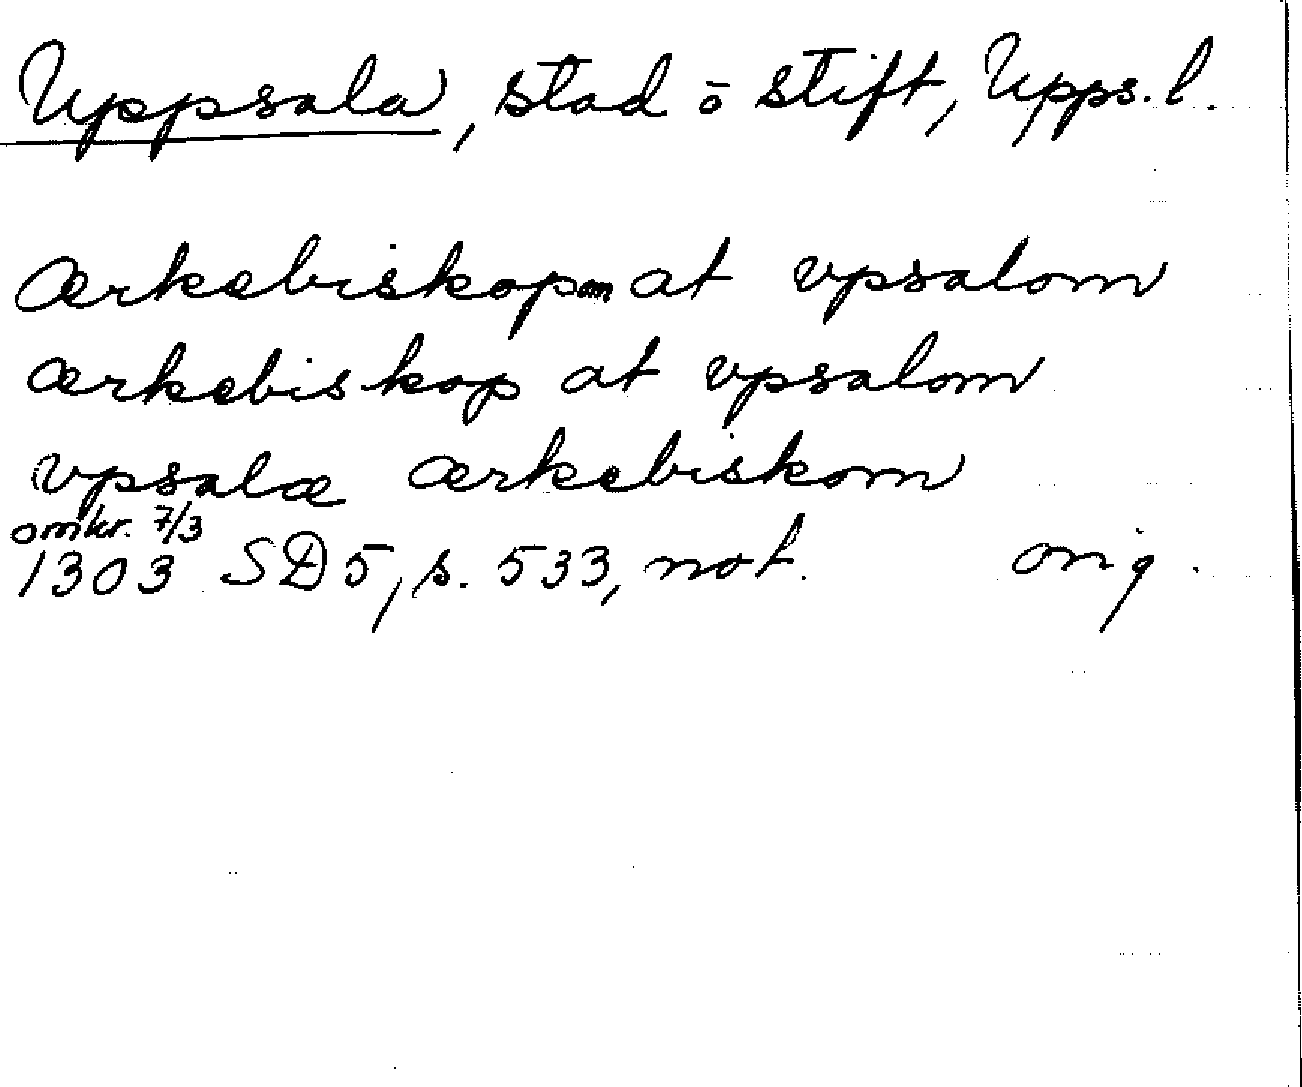 Uppsala, stad ō stift, Upps. l.
ærkebiskopom at vpsalom
ærkebiskop at vpsalom
vpsalæ ærkebiskom
omkr. 7/3
1303 SD 5, s. 533, not. orig.